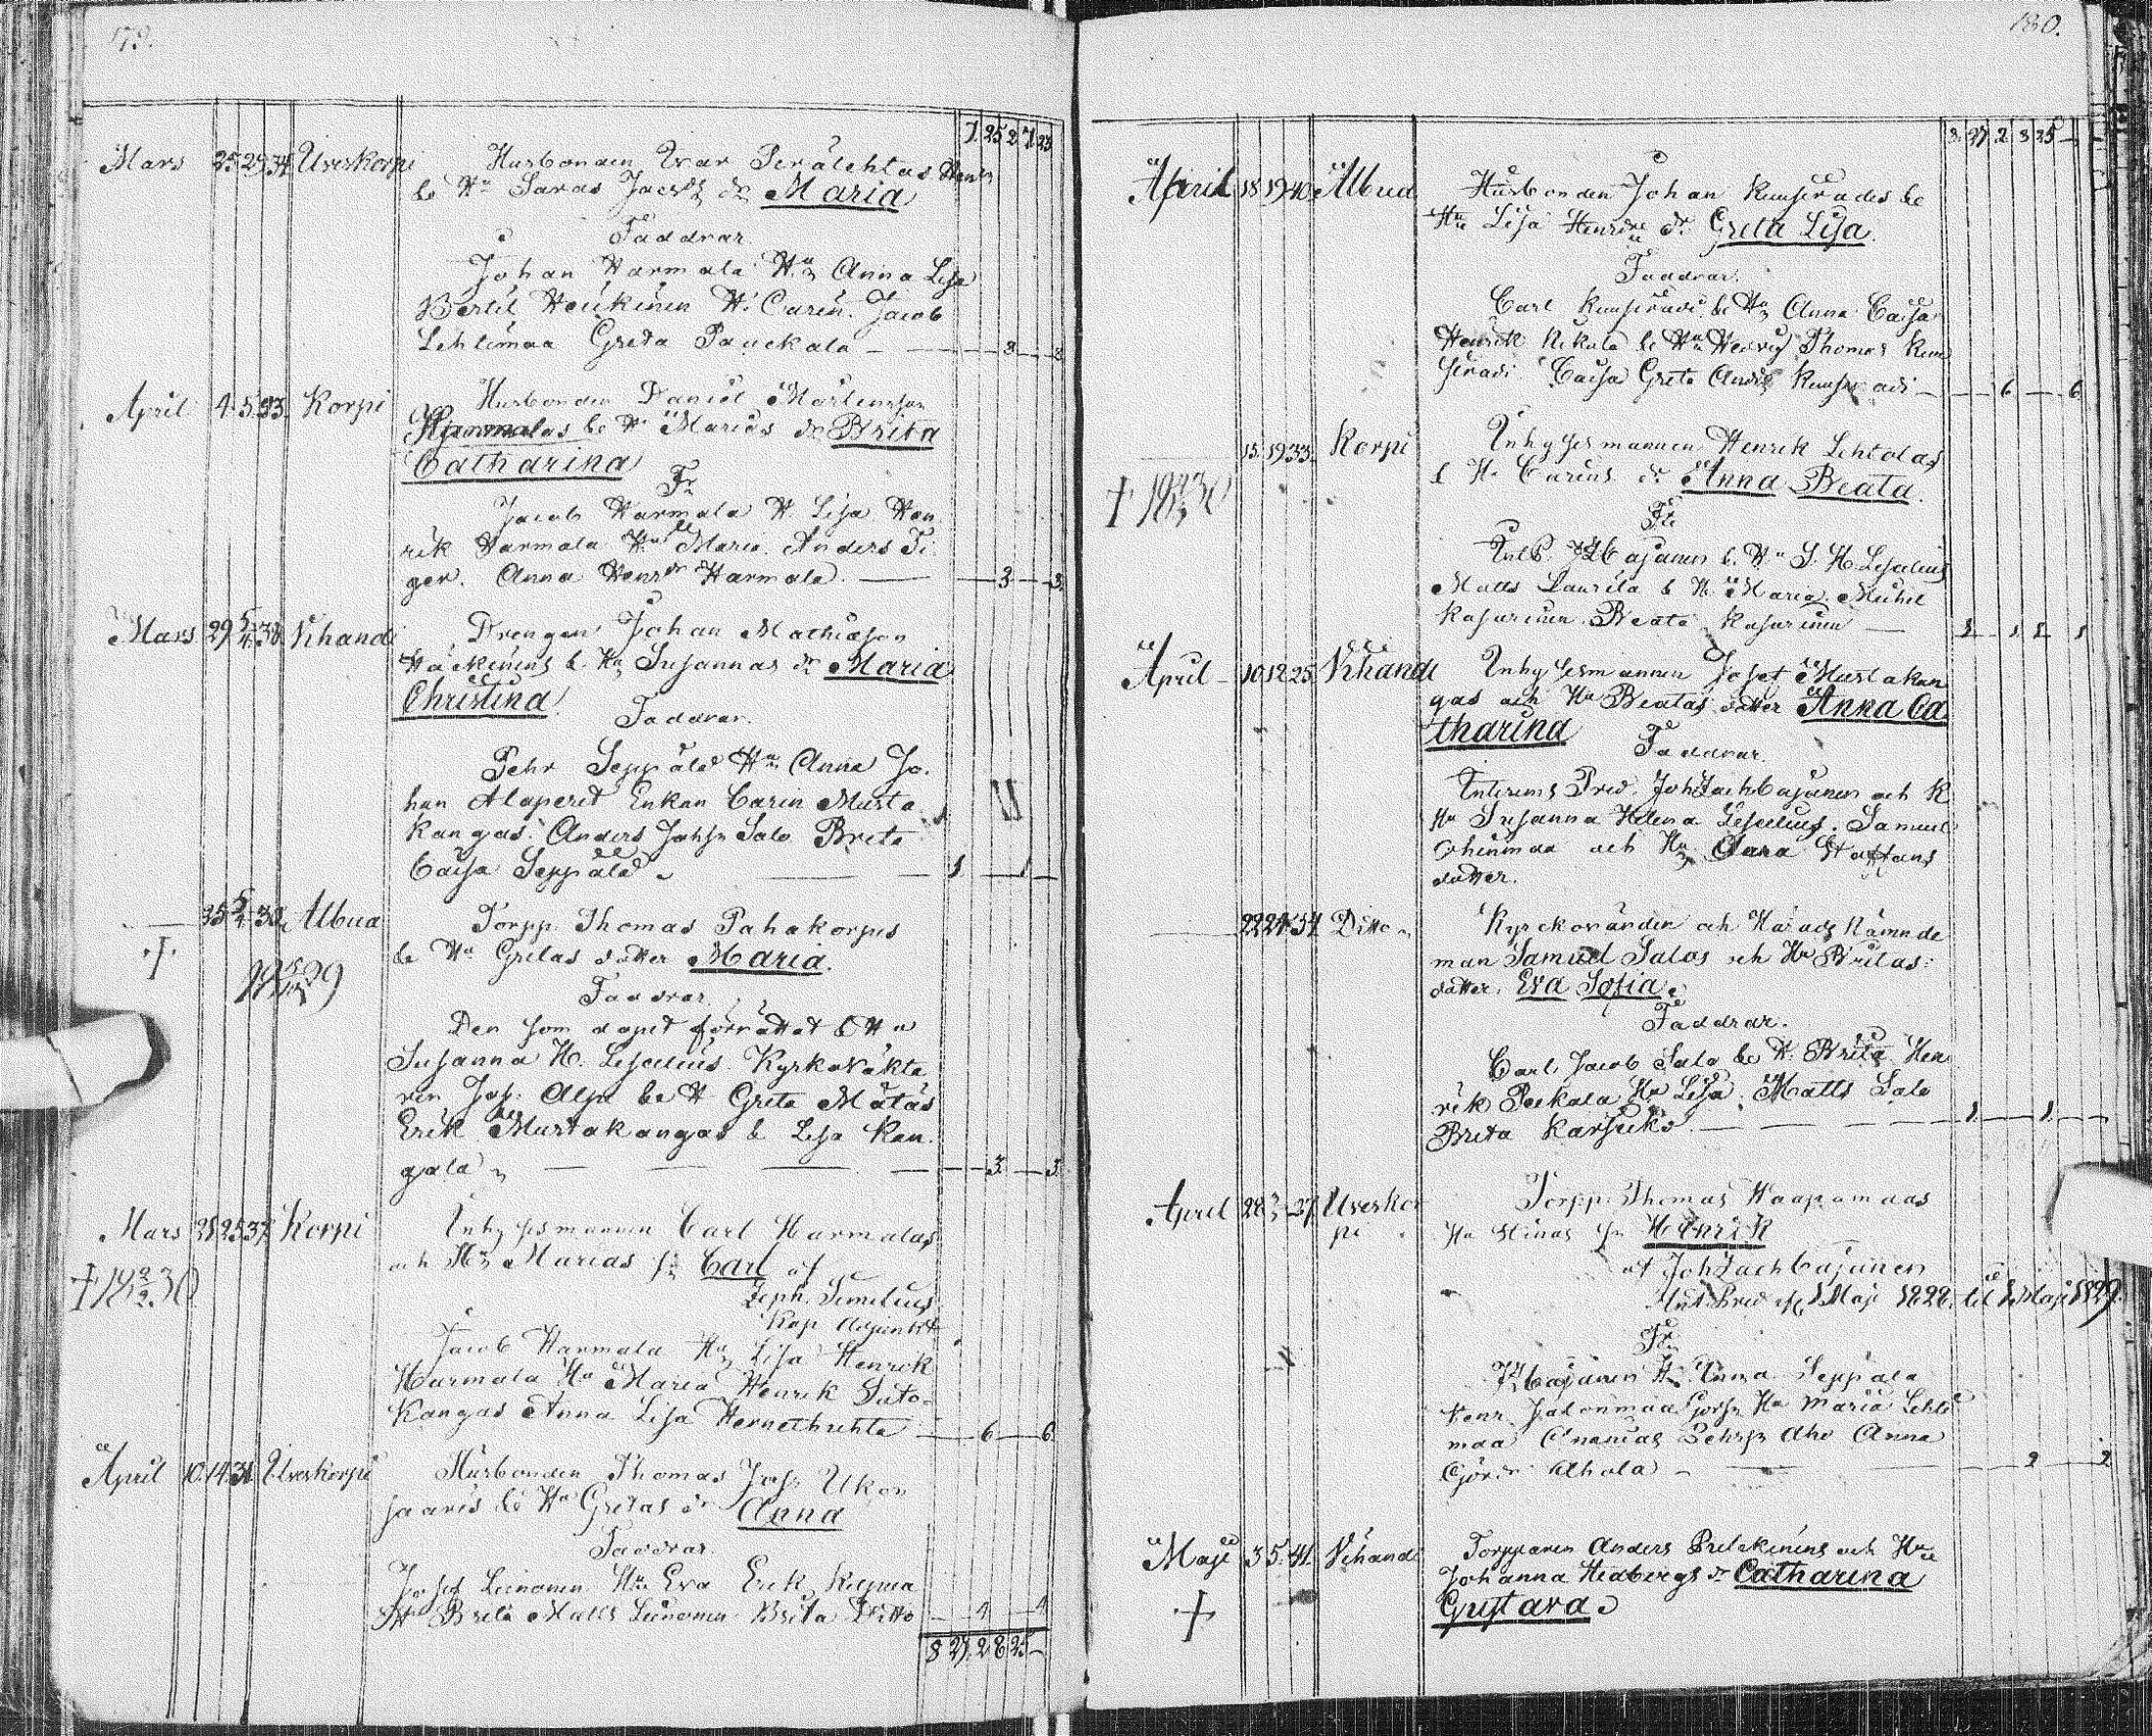 179.
7. 25 2 7. 23
Mars 23. 29. 34. Uveskorpi Husbonden Ivar Perälehtos Henrs
be Hu Saras Jacobs dr Maria
Faddrar.
Johan Harmala Hu Anna Lisa
Bertil Heikinen H. Carin. Jacob
Lehtimaa Greta Pauckala — 3 — 3
April 4. 5. 33. Korpi Husbonden Daniel Mårtensson
be H. Marias dr Brita
Catharina
Fr
Jacob Harmala H. Lisa Hen
rik Harmala Hu Maria. Anders Ti
ger. Anna Henrdr Harmala — 3 — 3.
Mars 29. 5/4. 38. Vihandi Drengen Johan Mathiesson
Häckinens b. Hu Susannas dr Maria
Christina.
Faddrar.
Pehr Seppälä Hu Anna Jo-
han Alaperet Enkan Carin Musta
kangas. Anders Johss Salo Brita
Caisa Seppälä — 1 — 1 —
— 25 5/4 32 Albua Torpp. Thomas Pahakorpis
be Hu Gretas dotter Maria.
+ 29
Faddrar
Den som dopet förrättat & Hu
Susanna H. Leselius. Kyrkoväkta
ren Jos. Alpi be H Greta Matas
Erik Mustakangas b Lisa Kan-
gala — 3 — 3
Mars 21 25 37. Korpi Inhysesmannen Carl Harmalas
och Hu Marias sn Carl af
+ 18 2/2 30 Zeph. Simelius
Kap. Adjunkt
Jacob Harmala Hu Lisa Henrik
Harmala Hu Maria Henrik Suto-
kangas Anna Lisa Hernethuhta — 6 — 6.
April 10. 14. 31. Uveskorpi Husbonden Thomas Johs Ukon
saaris be Hu Gretas dr Anna
Faddrar.
Josef Leinonen Hu Eva Erik
Hu Brita Matts Leinonen Brita Ditto — 4 — 4
8 27. 2 8 25 —
180.
8. 27. 2. 8 25 —
April 18. 19. 40. Albua Husbonden Johan Kumserades be
Hu Lisa Henrics dr Greta Lisa.
Faddrar.
Carl Kumseradi be Hu Anna Caisa
Henrik Nikula be Hu Hedvig Thomas Kum
seradi Caisa Greta Andrs Kumseradi — 6 — 6
— 15. 19. 33. Korpi Inhysesmannen Henrik Lehtolas
& H. Carins dr Anna Beata.
+ 18 30
Fr
Cajanen b. Hu S. H. Leselius
Matts Laurila b H. Maria. Michel
Kasurinen. Beata Kasurinen — 1 — 1 1 — 1
April — 10 12 25. Vihandi Inhysesmannen Josef Mustakan
gas och Hu Beatas dotter Anna Ca
tharina
Faddrar.
Interims Pred. Joh Zach Cajanen och K
Hu Susanna Helena Leselius. Samuel
Ohinmaa och Hu Sara Staffans
dotter.
— 22 24 34 Ditto Kyrckovärden och Härads Nämnde
man Samuel Salos och Hu Britas
dotter. Eva Sofia.
Faddrar.
Carl Jacob Salo be H. Brita Hen
rik Peekala Hu Lisa. Matts Salo
Brita Karsikko — 1 — 1 —
April 28. 3 — 27. Uveskor
pi Torpp. Thomas Haapamaas
Hu Stinas sn Henrik
af Joh Zach Cajanen
Int. Pred. fr 1 Maji 1828. til 1 Maji 1829.
Fr
Cajanen H. Anna Seppala
Henr. Jatonmaa Hu Maria Lehti
maa Ananias Pehrs Aho Anna
Görsdr Ahola — 2 — 2.
Maji 3. 5. 41. Vihandi Torpparen Anders Pelckinins och Hu
Johanna Hedbergs dr Catharina
+
Gustava.